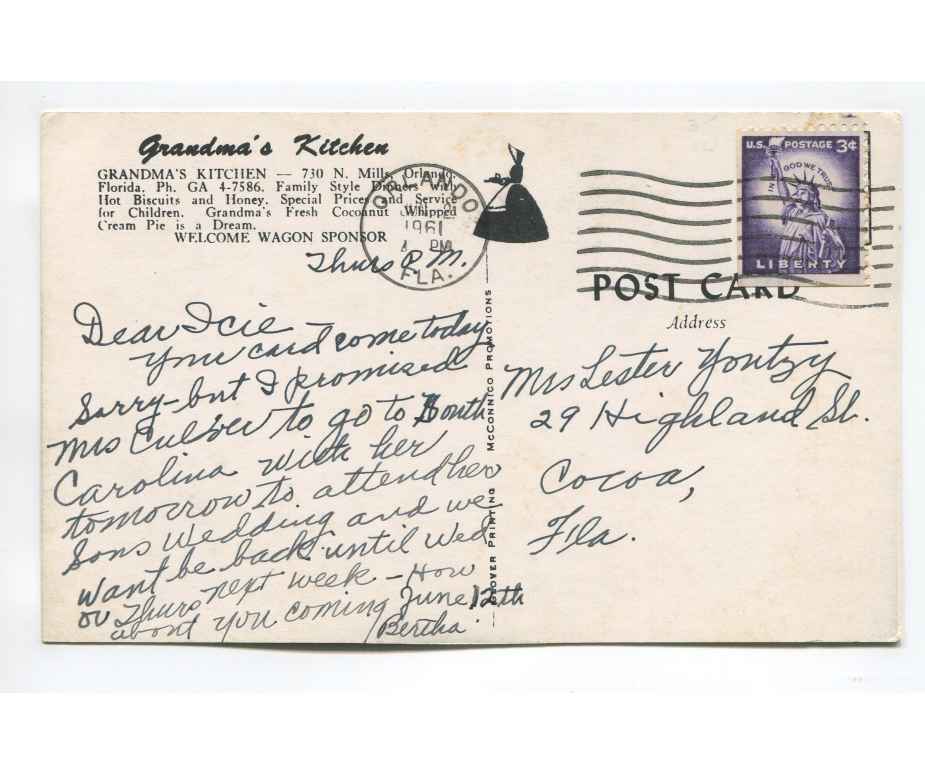 Grandma's Kitchen
GRANDMA'S KITCHEN — 730 N. Mills, Orlando,
Florida. Ph. GA 4-7586. Family Style Dinners with
Hot Biscuits and Honey. Special Prices and Service
for Children. Grandma's Fresh Coconut Whipped
Cream Pie is a Dream.
WELCOME WAGON SPONSOR
Thurs P.M.
Dear Icie
Your card come today
Sorry - but I promised
Mrs Culver to go to South
Carolina with her
tomorrow to attend her
Sons Wedding and we
wont be back until Wed
or Thurs next week - How
about you coming June 12th
Bertha.
ORLANDO
1961
PM
FLA.
CLOVER PRINTING McCONNICO PROMOTIONS
U.S. POSTAGE 3¢
IN GOD WE TRUST
LIBERTY
POST CARD
Address
Mrs Lester Yontzy
29 Highland St.
Cocoa,
Fla.